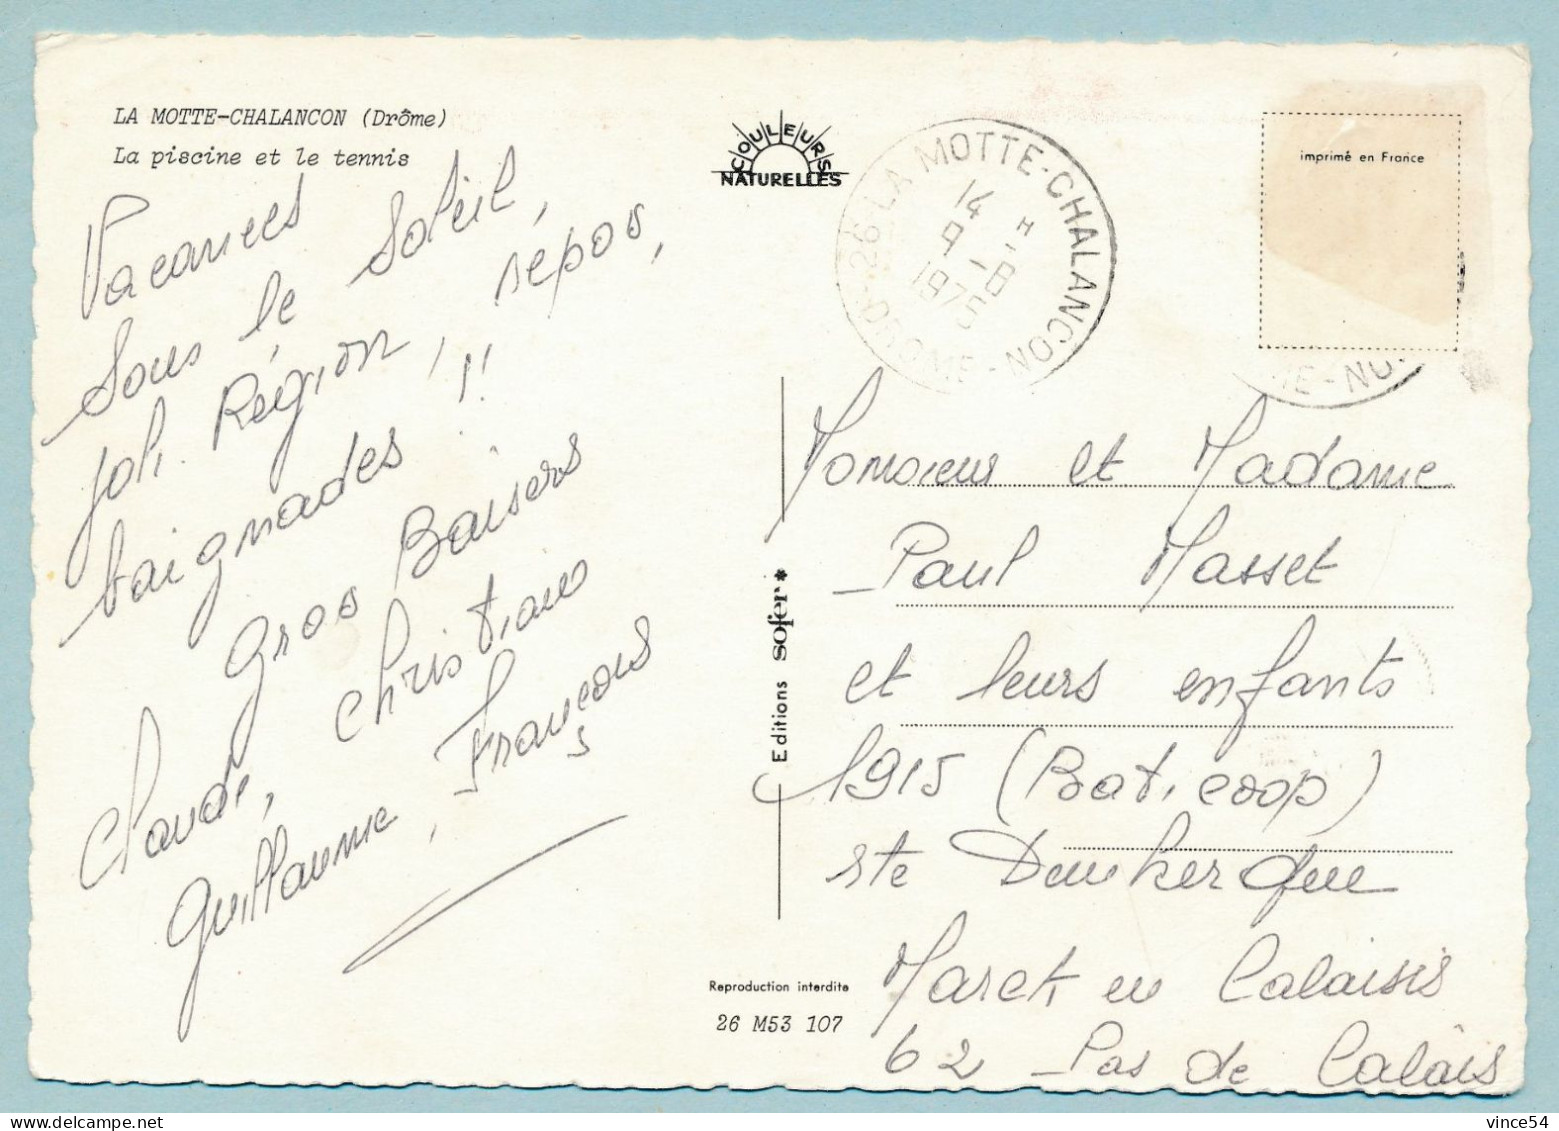 LA MOTTE-CHALANCON (Drôme)
La piscine et le tennis
Vacances
sous le Soleil,
joli Région, repos,
baignades !!
Gros Baisers
Claude, Christiane
Guillaume, François
COULEURS
NATURELLES
26 LA MOTTE-CHALANCON
DROME
14 H
9 - 8
1975
imprimé en France
ME - NO
Monsieur et Madame
Paul Masset
et leurs enfants
1915 (Bat. coop)
rte Dunkerque
Marck en Calaisis
62 Pas de Calais
Editions sofer*
Reproduction interdite
26 M53 107
vince54